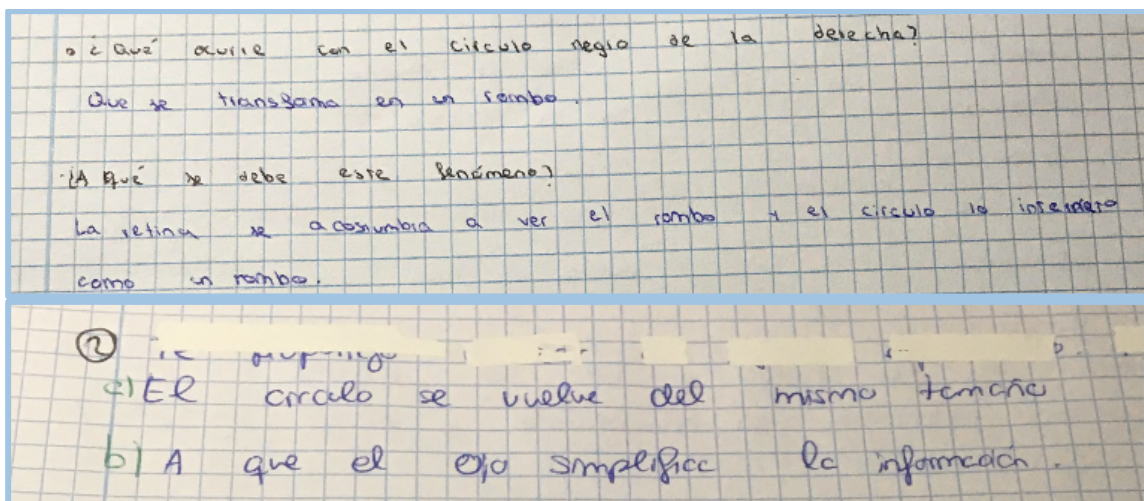 ¿Qué ocurre con el circulo negro de la derecha?
Que se transforma en un rombo.
¿A qué se debe este fenómeno?
La retina se acostumbra a ver el rombo y el circulo lo interpreta
como un rombo.
2
a) El circulo se vuelve del mismo tamaño
b) A que el ojo simplifica la información.